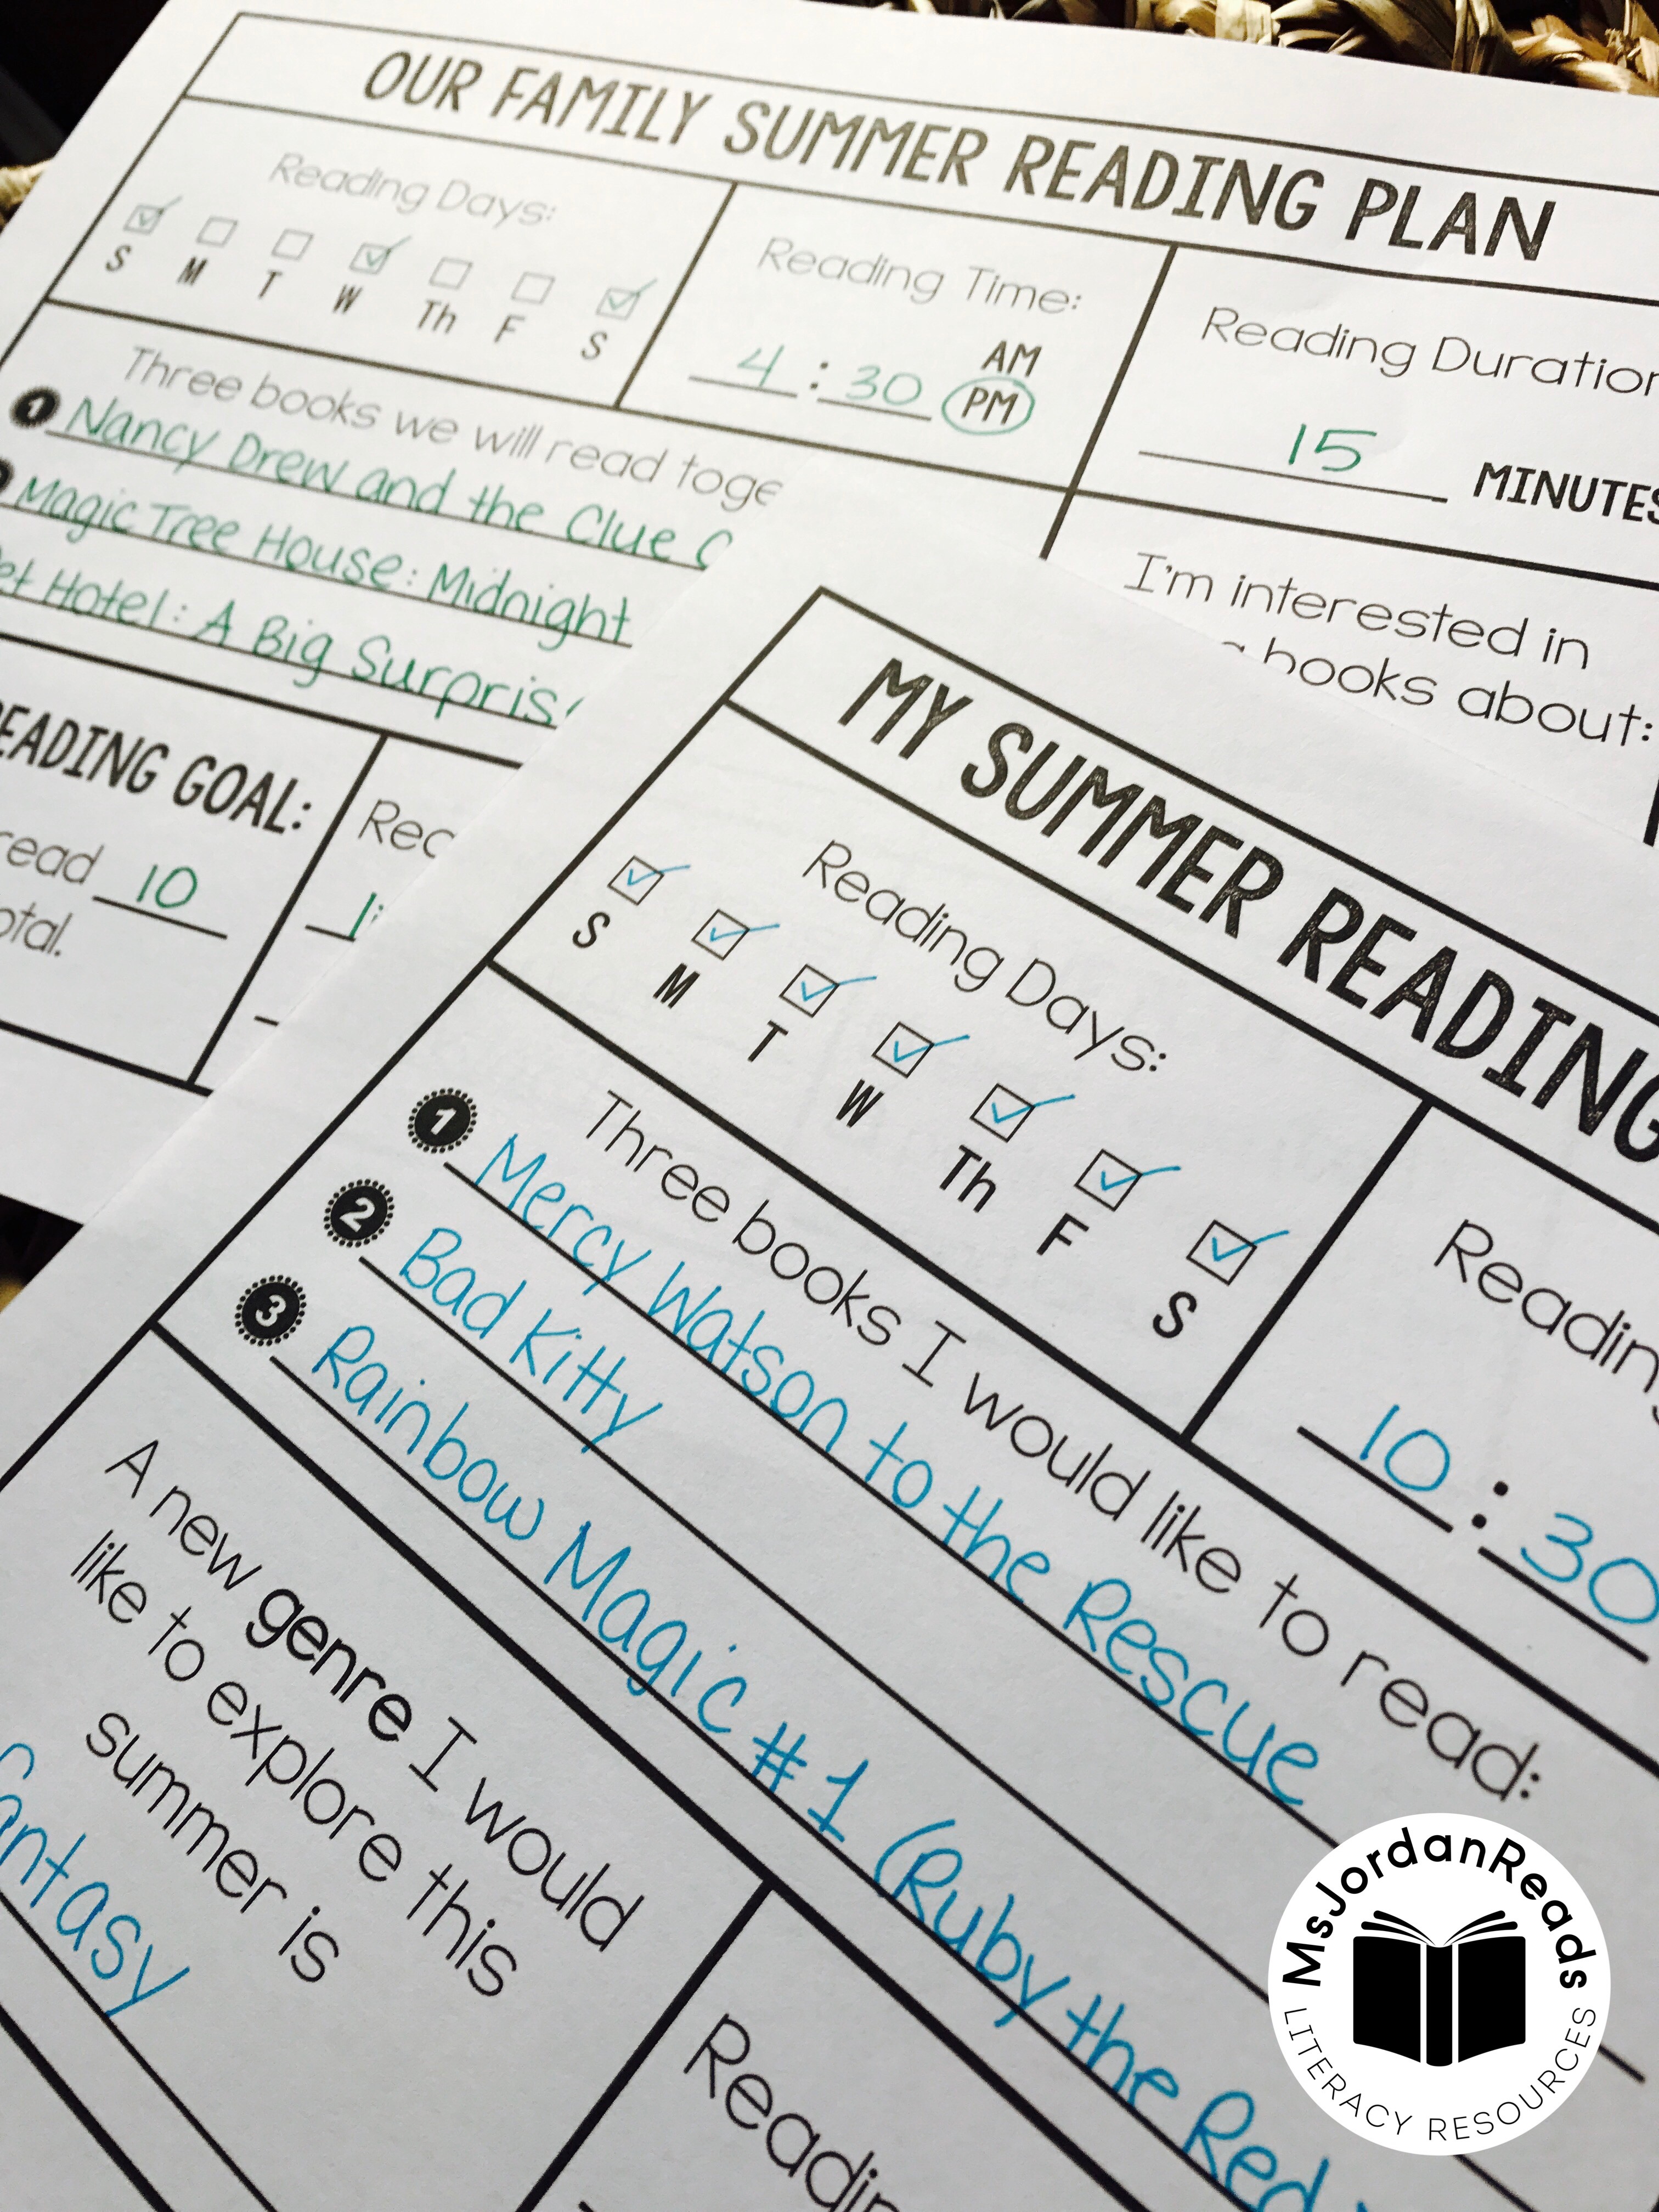 OUR FAMILY SUMMER READING PLAN
Reading Days:
S M T W Th F S
Reading Time:
4 : 30 AM
PM
Reading Duration
15 MINUTES
Three books we will read
1 Nancy Drew and the Clue
Magic Tree House: Midnight
Hotel: A Big
I'm interested in
books about:
GOAL:
read 10
MY SUMMER READING
Reading Days:
S M T W Th F S
10 : 30
Three books I would like to read:
1 Mercy Watson to the Rescue
2 Bad Kitty
3 Rainbow Magic #1 (Ruby the Red
A new genre I would
like to explore this
summer is
MsJordanReads
LITERACY RESOURCES